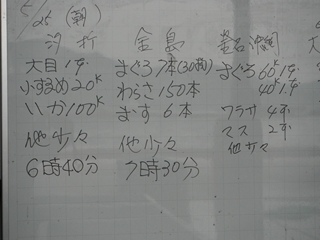 5/25 (朝)
汐折
大目 1本
小すずめ 20K
いか 100K
他少々
6時40分
金島
まぐろ 7本(30前)
わらさ 150本
ます 6本
他少々
7時30分
まぐろ 60K 1本
40K 1本
ワラサ 4本
マス 2本
他少々